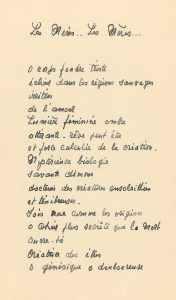 Les Mères... Les Mères...
O corps fondre triste
échoue dans les régions sauvages
de l'amour
Lumière féminine ombre
atterante. rêve peut être
et force calculée de la création.
Mystérieuse biologie
savant démons
docteur des créatures ensoleillées
et ténébreuses.
Sois nue comme les origines
o chair plus secrète que la mort
ouvre-toi
Créatrice des êtres
o générique o douloureuse